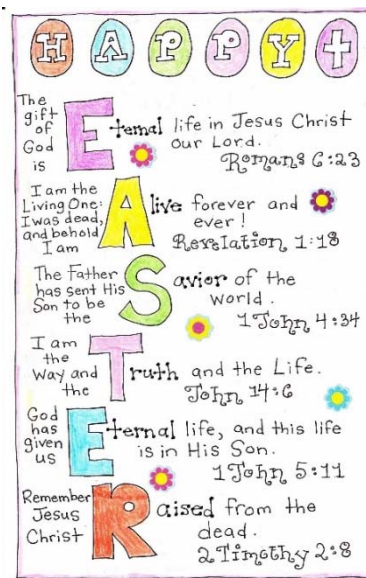 HAPPY
The gift of God is Eternal life in Jesus Christ our Lord.
Romans 6:23
I am the Living One: I was dead, and behold I am Alive forever and ever!
Revelation 1:18
The Father has sent His Son to be the Savior of the world.
1 John 4:34
I am the Way and the Truth and the Life.
John 14:6
God has given us Eternal life, and this life is in His Son.
1 John 5:11
Remember Jesus Christ Raised from the dead.
2 Timothy 2:8